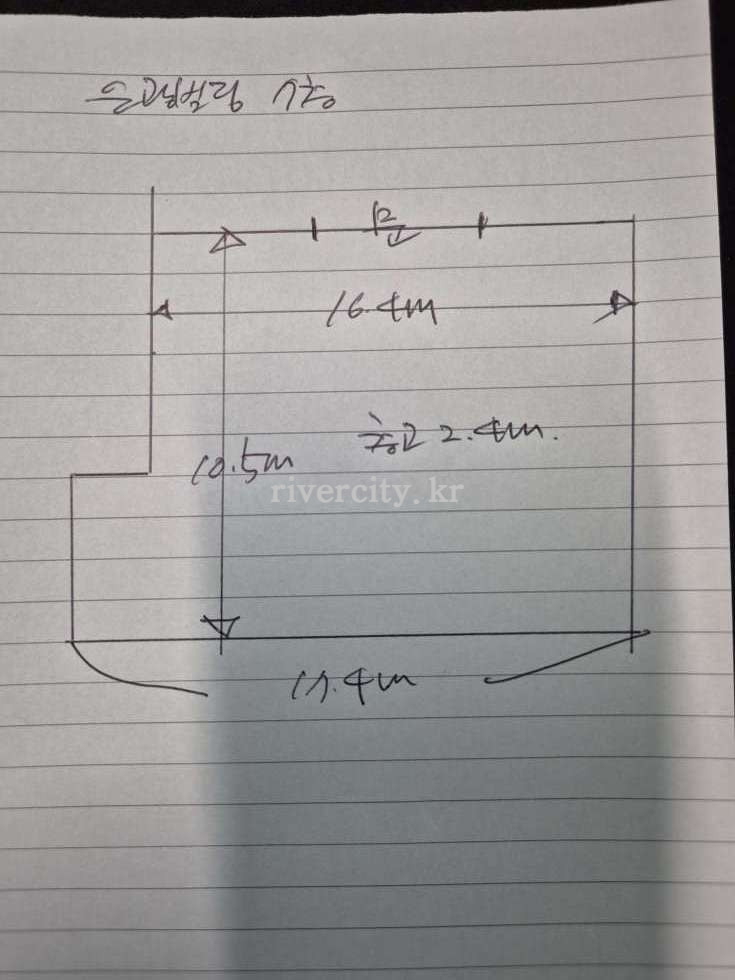 1층
문
16.4m
층고 2.4m.
10.5m
rivercity.kr
17.4m